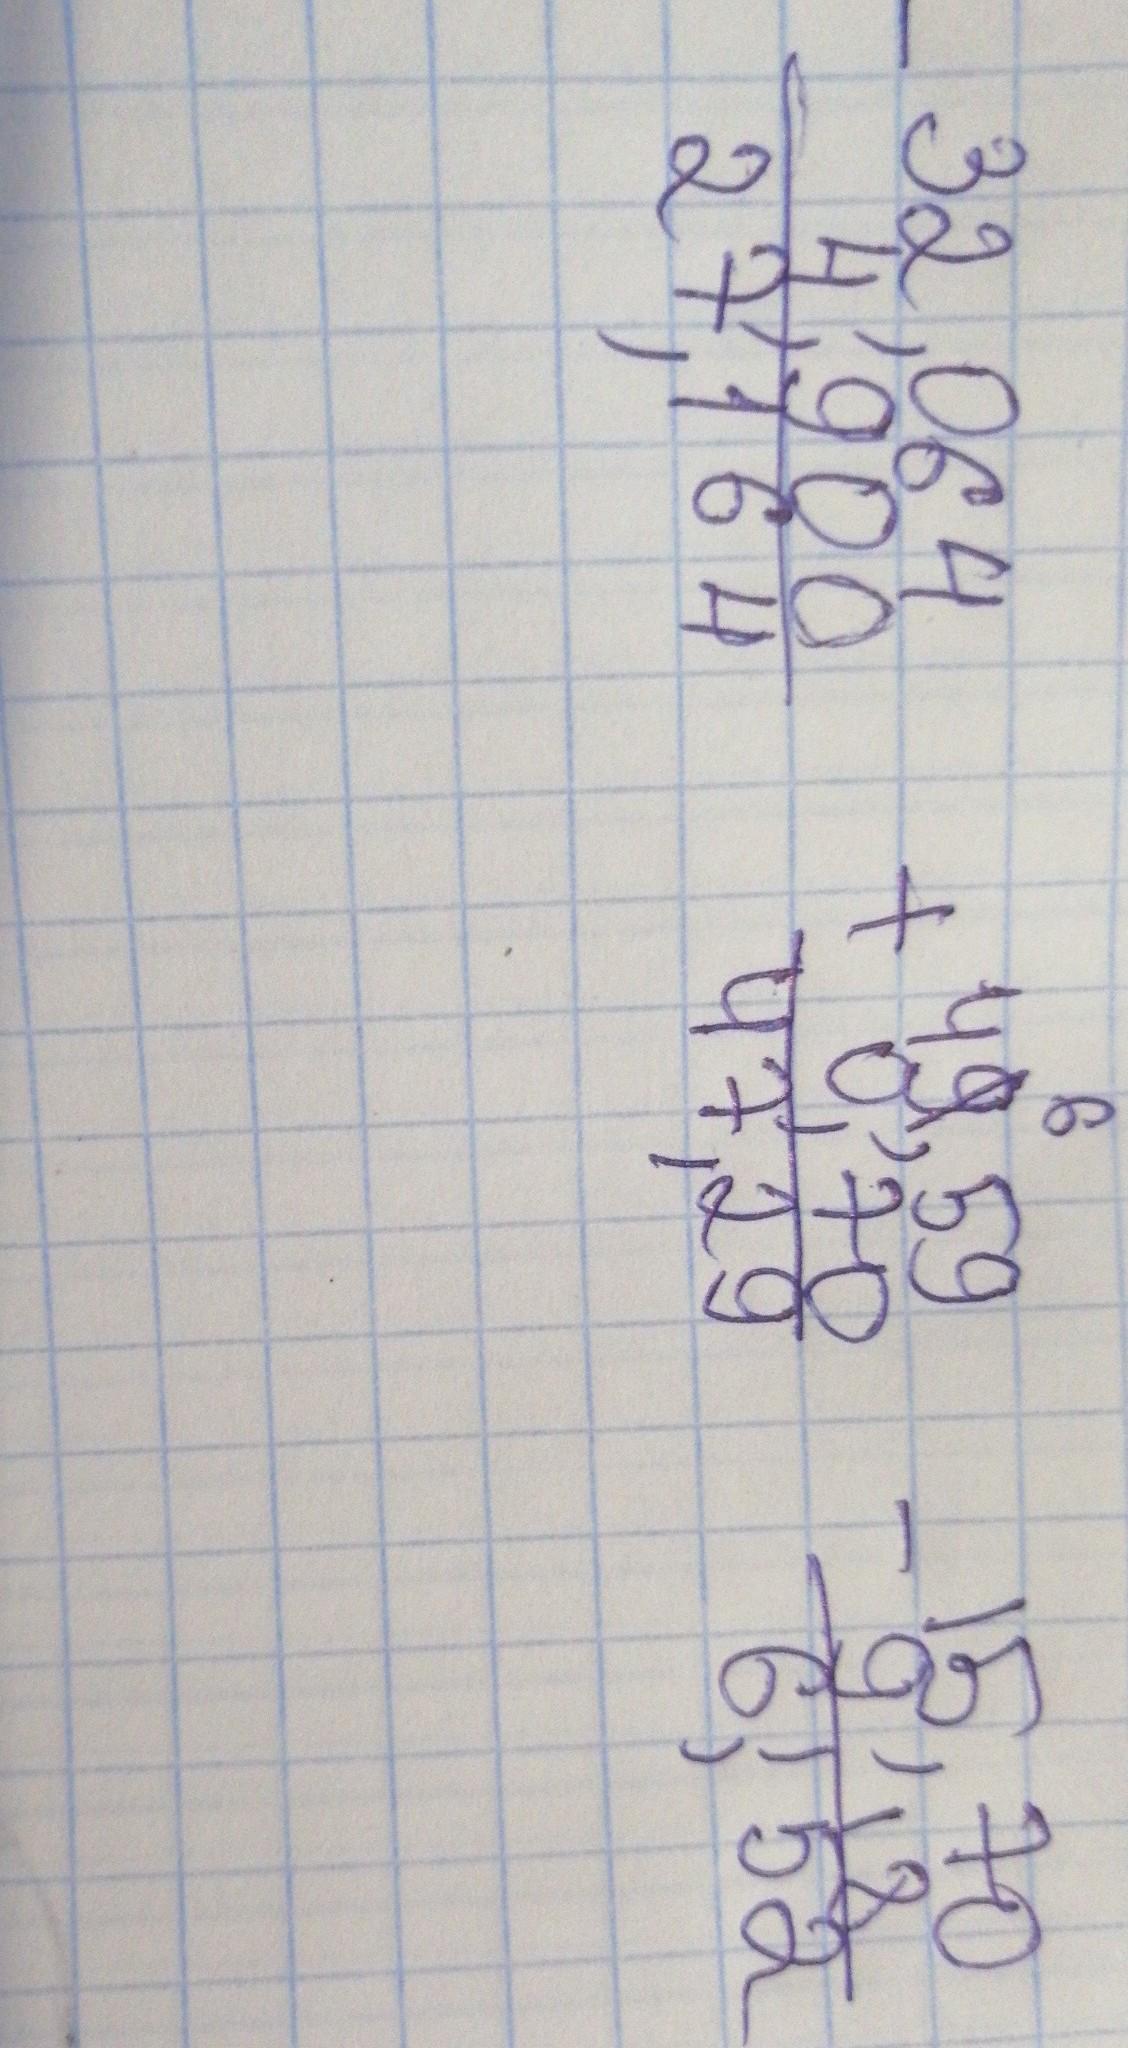 - 32,064
4,900
27,164
6
+ 49,59
0,70
47,29
- 15,70
9,18
6,52